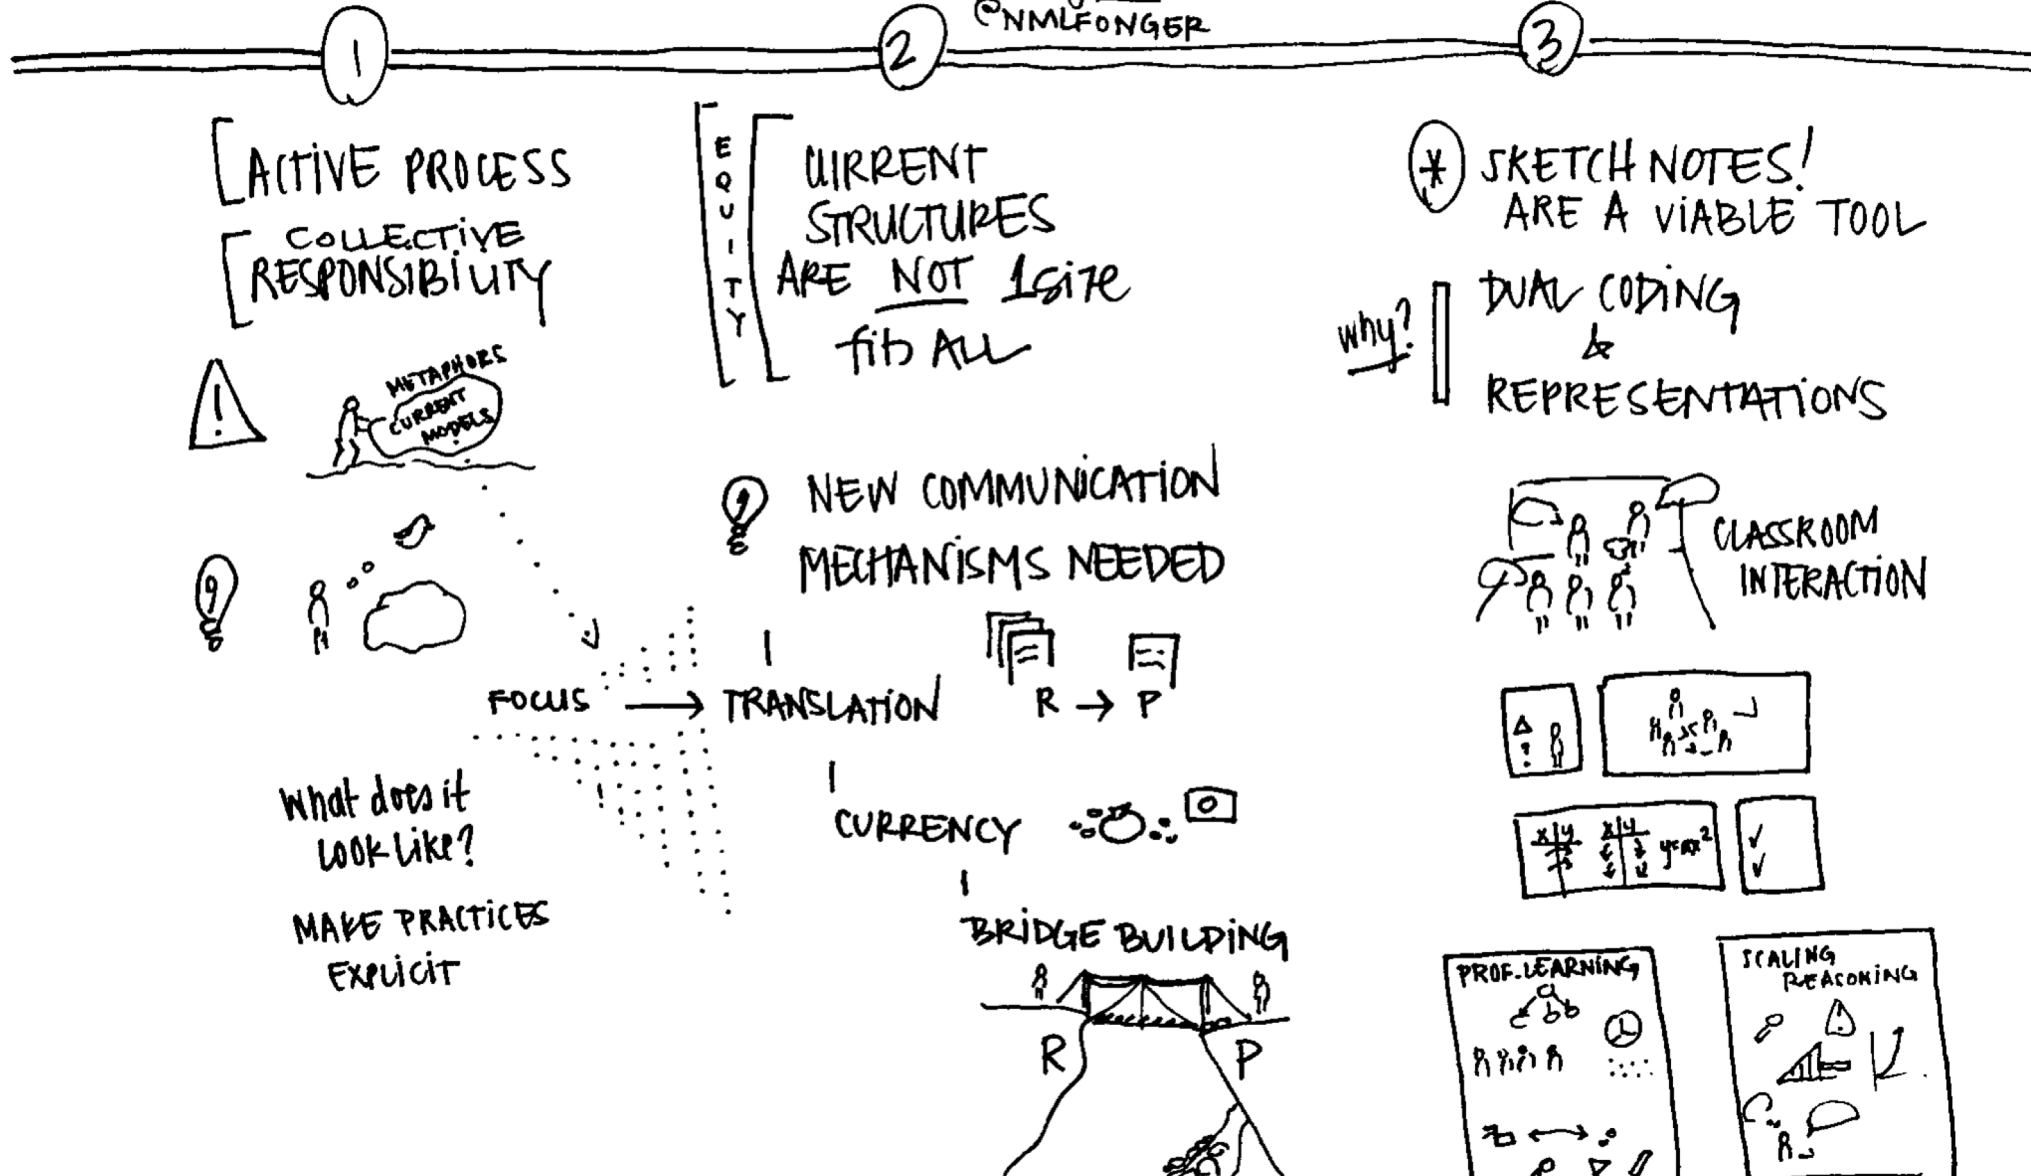 @NMLFONGER
1
2
3
ACTIVE PROCESS
COLLECTIVE
RESPONSIBILITY
!
METAPHORS
CURRENT
MODELS
FOCUS → TRANSLATION
What does it
LOOK LIKE?
MAKE PRACTICES
EXPLICIT
EQUITY
CURRENT
STRUCTURES
ARE NOT 1 size
fits ALL
NEW COMMUNICATION
MECHANISMS NEEDED
R → P
CURRENCY
BRIDGE BUILDING
R P
* SKETCH NOTES!
ARE A VIABLE TOOL
why?
DUAL CODING
&
REPRESENTATIONS
CLASSROOM
INTERACTION
x y x y
PROF. LEARNING
SCALING
REASONING
!